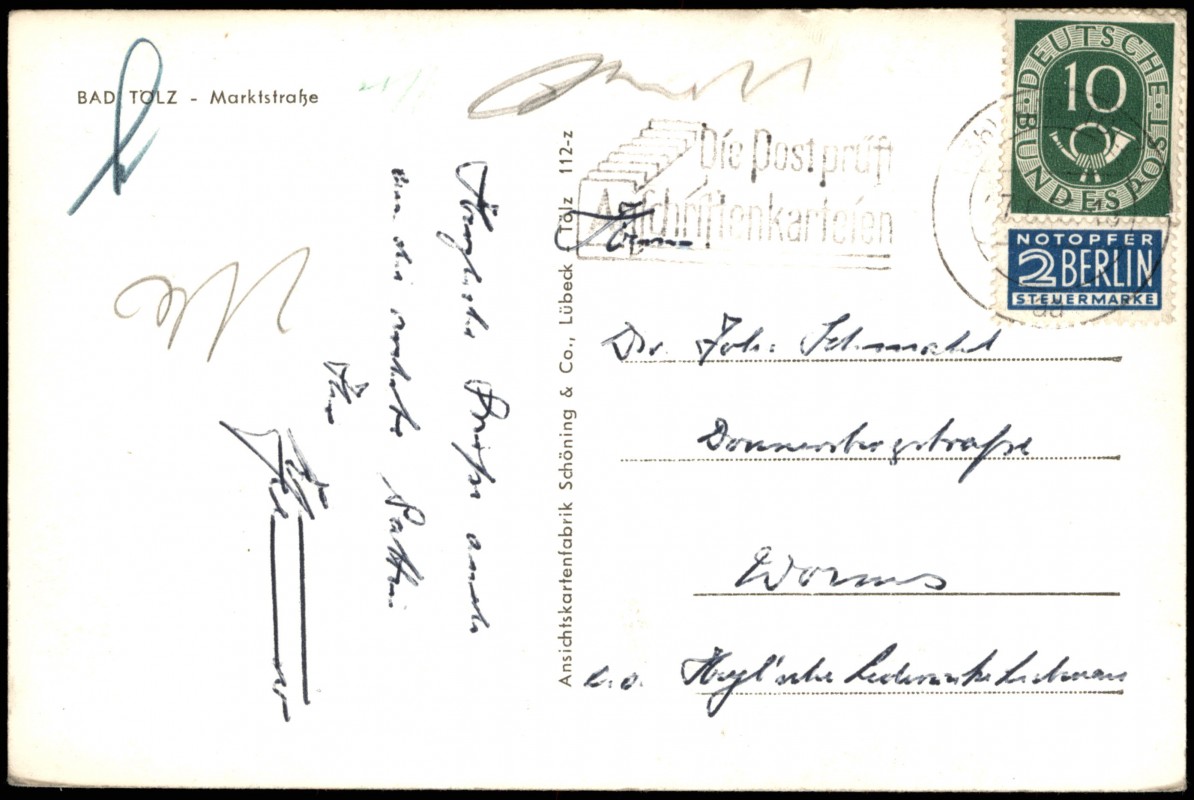 BAD TÖLZ - Marktstraße
Herzliche Grüße auch
an die werte Gattin
Ihr
Ansichtskartenfabrik Schöning & Co., Lübeck Tölz 112-z
Die Post prüft
Anschriftenkarteien
DEUTSCHE BUNDESPOST
10
NOTOPFER
2 BERLIN
STEUERMARKE
Dr. Joh. Schmahl
Donnersbergstraße
Worms
Heyl'sche Lederwerke Liebenau